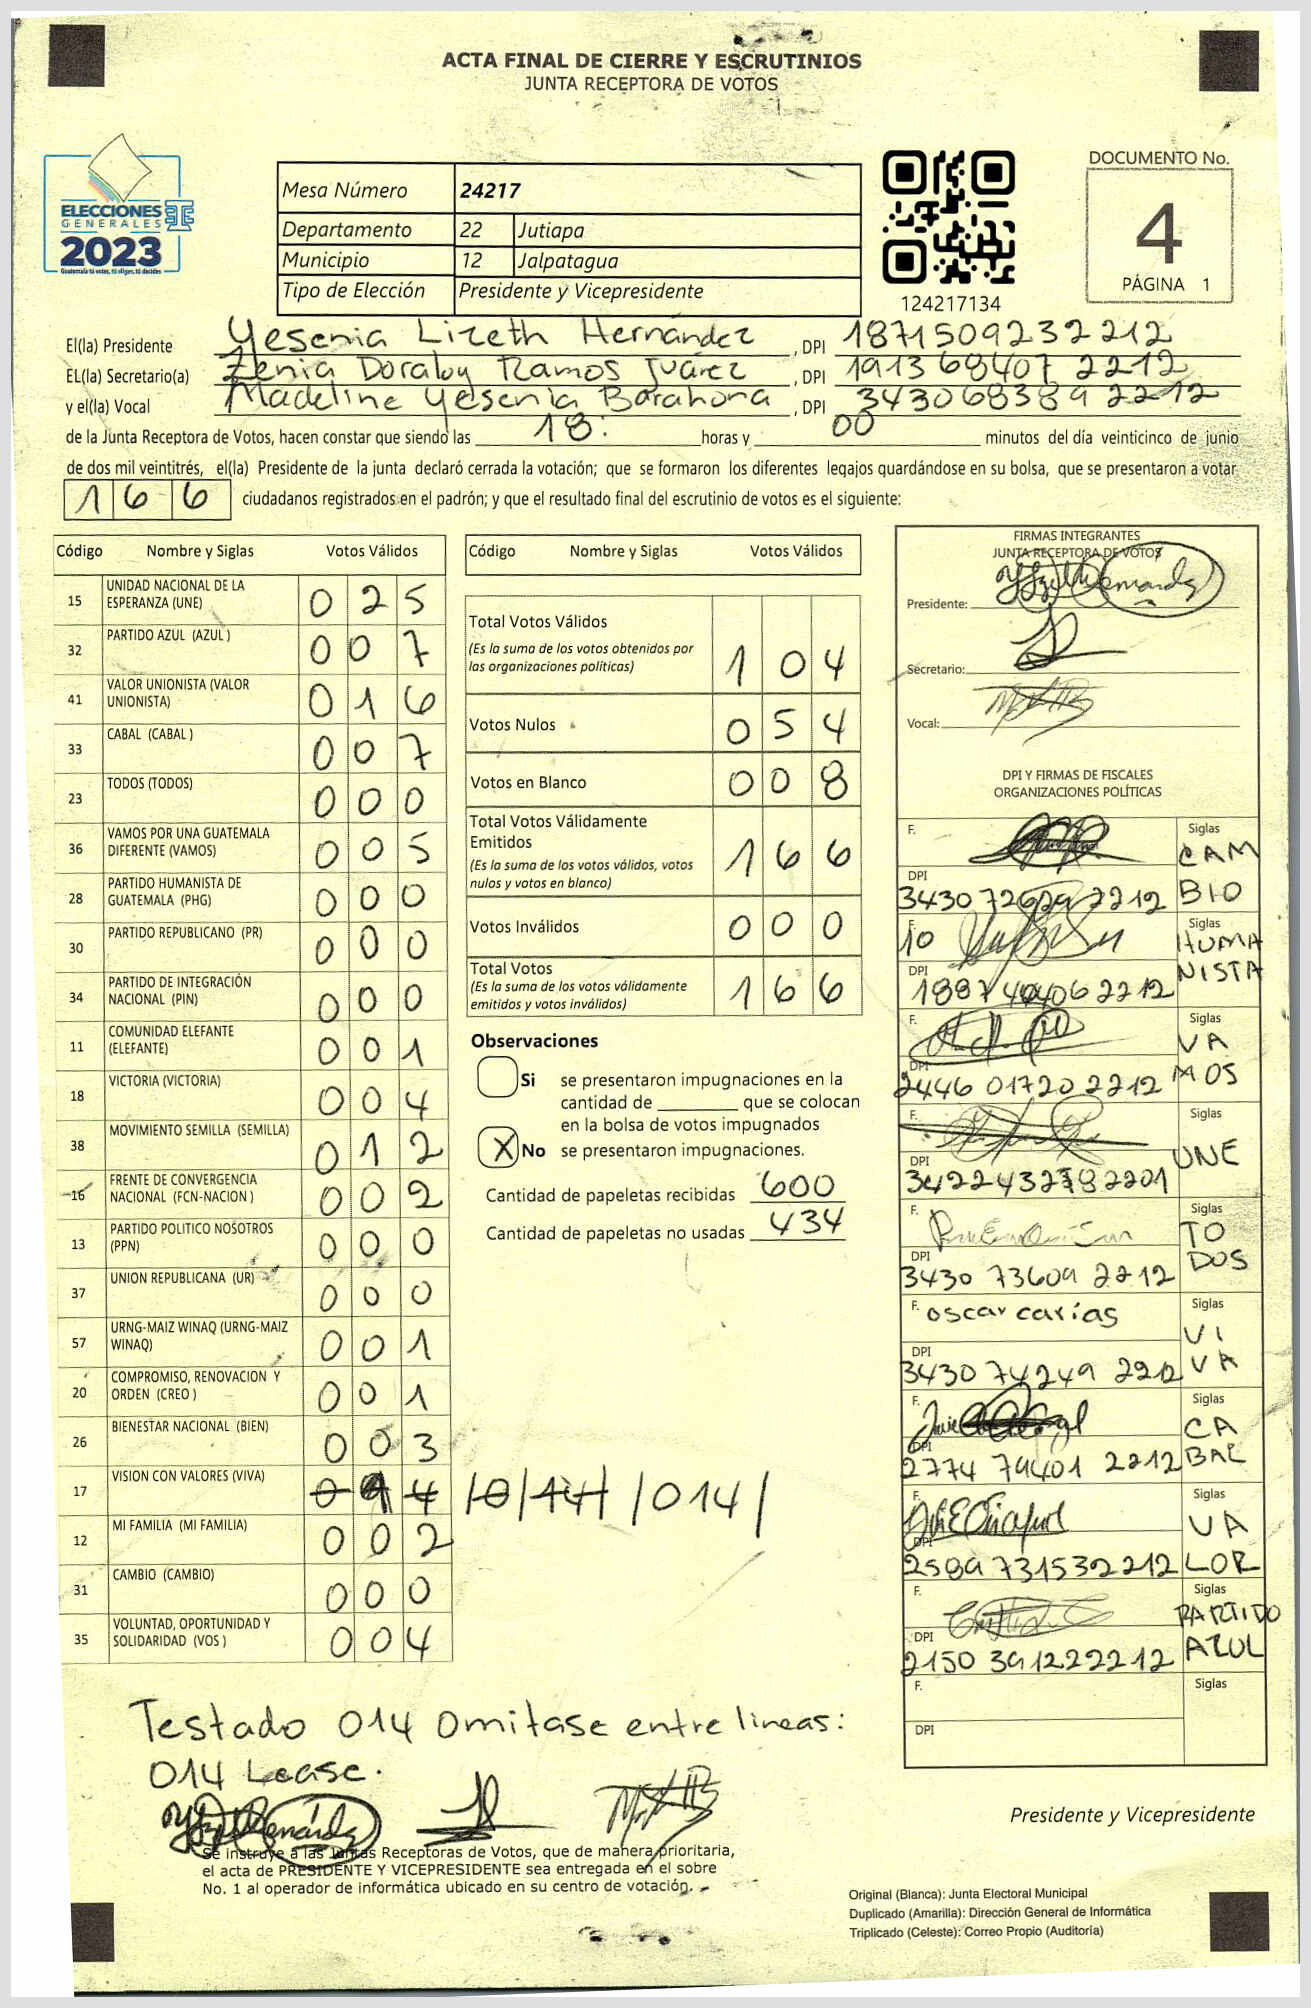 ACTA FINAL DE CIERRE Y ESCRUTINIOS
JUNTA RECEPTORA DE VOTOS
ELECCIONES
GENERALES
2023
Guatemala tú votas, tú eliges, tú decides
Mesa Número 24217
Departamento 22 Jutiapa
Municipio 12 Jalpatagua
Tipo de Elección Presidente y Vicepresidente
124217134
DOCUMENTO No.
4
PÁGINA 1
El(la) Presidente Yesenia Lizeth Hernández, DPI 1871509232212
EL(la) Secretario(a) Zenia Doralby Ramos Juárez, DPI 1913684072212
y el(la) Vocal Madeline Yesenia Barahona, DPI 3430683892212
de la Junta Receptora de Votos, hacen constar que siendo las 18: horas y 00 minutos del día veinticinco de junio
de dos mil veintitrés, el(la) Presidente de la junta declaró cerrada la votación; que se formaron los diferentes legajos quardándose en su bolsa, que se presentaron a votar
166 ciudadanos registrados en el padrón; y que el resultado final del escrutinio de votos es el siguiente:
Código Nombre y Siglas Votos Válidos
15 UNIDAD NACIONAL DE LA ESPERANZA (UNE) 025
32 PARTIDO AZUL (AZUL ) 007
41 VALOR UNIONISTA (VALOR UNIONISTA) 016
33 CABAL (CABAL ) 007
23 TODOS (TODOS) 000
36 VAMOS POR UNA GUATEMALA DIFERENTE (VAMOS) 005
28 PARTIDO HUMANISTA DE GUATEMALA (PHG) 000
30 PARTIDO REPUBLICANO (PR) 000
34 PARTIDO DE INTEGRACIÓN NACIONAL (PIN) 000
11 COMUNIDAD ELEFANTE (ELEFANTE) 001
18 VICTORIA (VICTORIA) 004
38 MOVIMIENTO SEMILLA (SEMILLA) 012
16 FRENTE DE CONVERGENCIA NACIONAL (FCN-NACION ) 002
13 PARTIDO POLITICO NOSOTROS (PPN) 000
37 UNION REPUBLICANA (UR) 000
57 URNG-MAIZ WINAQ (URNG-MAIZ WINAQ) 001
20 COMPROMISO, RENOVACION Y ORDEN (CREO ) 001
26 BIENESTAR NACIONAL (BIEN) 003
17 VISION CON VALORES (VIVA) 014 /014/
12 MI FAMILIA (MI FAMILIA) 002
31 CAMBIO (CAMBIO) 000
35 VOLUNTAD, OPORTUNIDAD Y SOLIDARIDAD (VOS ) 004
Código Nombre y Siglas Votos Válidos
Total Votos Válidos
(Es la suma de los votos obtenidos por las organizaciones políticas) 104
Votos Nulos 054
Votos en Blanco 008
Total Votos Válidamente Emitidos
(Es la suma de los votos válidos, votos nulos y votos en blanco) 166
Votos Inválidos 000
Total Votos
(Es la suma de los votos válidamente emitidos y votos inválidos) 166
Observaciones
Si se presentaron impugnaciones en la
cantidad de ________ que se colocan
en la bolsa de votos impugnados
X No se presentaron impugnaciones.
Cantidad de papeletas recibidas 600
Cantidad de papeletas no usadas 434
FIRMAS INTEGRANTES
JUNTA RECEPTORA DE VOTOS
Presidente:
Secretario:
Vocal:
DPI Y FIRMAS DE FISCALES
ORGANIZACIONES POLÍTICAS
F. Siglas CAMBIO
DPI
F. Siglas HUMANISTA
DPI
F. Siglas VAMOS
DPI 2446 01720 2212
F. Siglas UNE
DPI
F. Siglas TODOS
DPI 3430 73609 2212
F. oscar carías Siglas VIVA
DPI 3430 74249 2212
F. Siglas CABAL
DPI 2774 79401 2212
F. Siglas VALOR
DPI 2589 731532212
F. Siglas PARTIDO AZUL
DPI 2150 391222212
F. Siglas
DPI
Testado 014 Omitase entre lineas:
014 Lease.
Se instruye a las Juntas Receptoras de Votos, que de manera prioritaria,
el acta de PRESIDENTE Y VICEPRESIDENTE sea entregada en el sobre
No. 1 al operador de informática ubicado en su centro de votación.
Presidente y Vicepresidente
Original (Blanca): Junta Electoral Municipal
Duplicado (Amarilla): Dirección General de Informática
Triplicado (Celeste): Correo Propio (Auditoría)